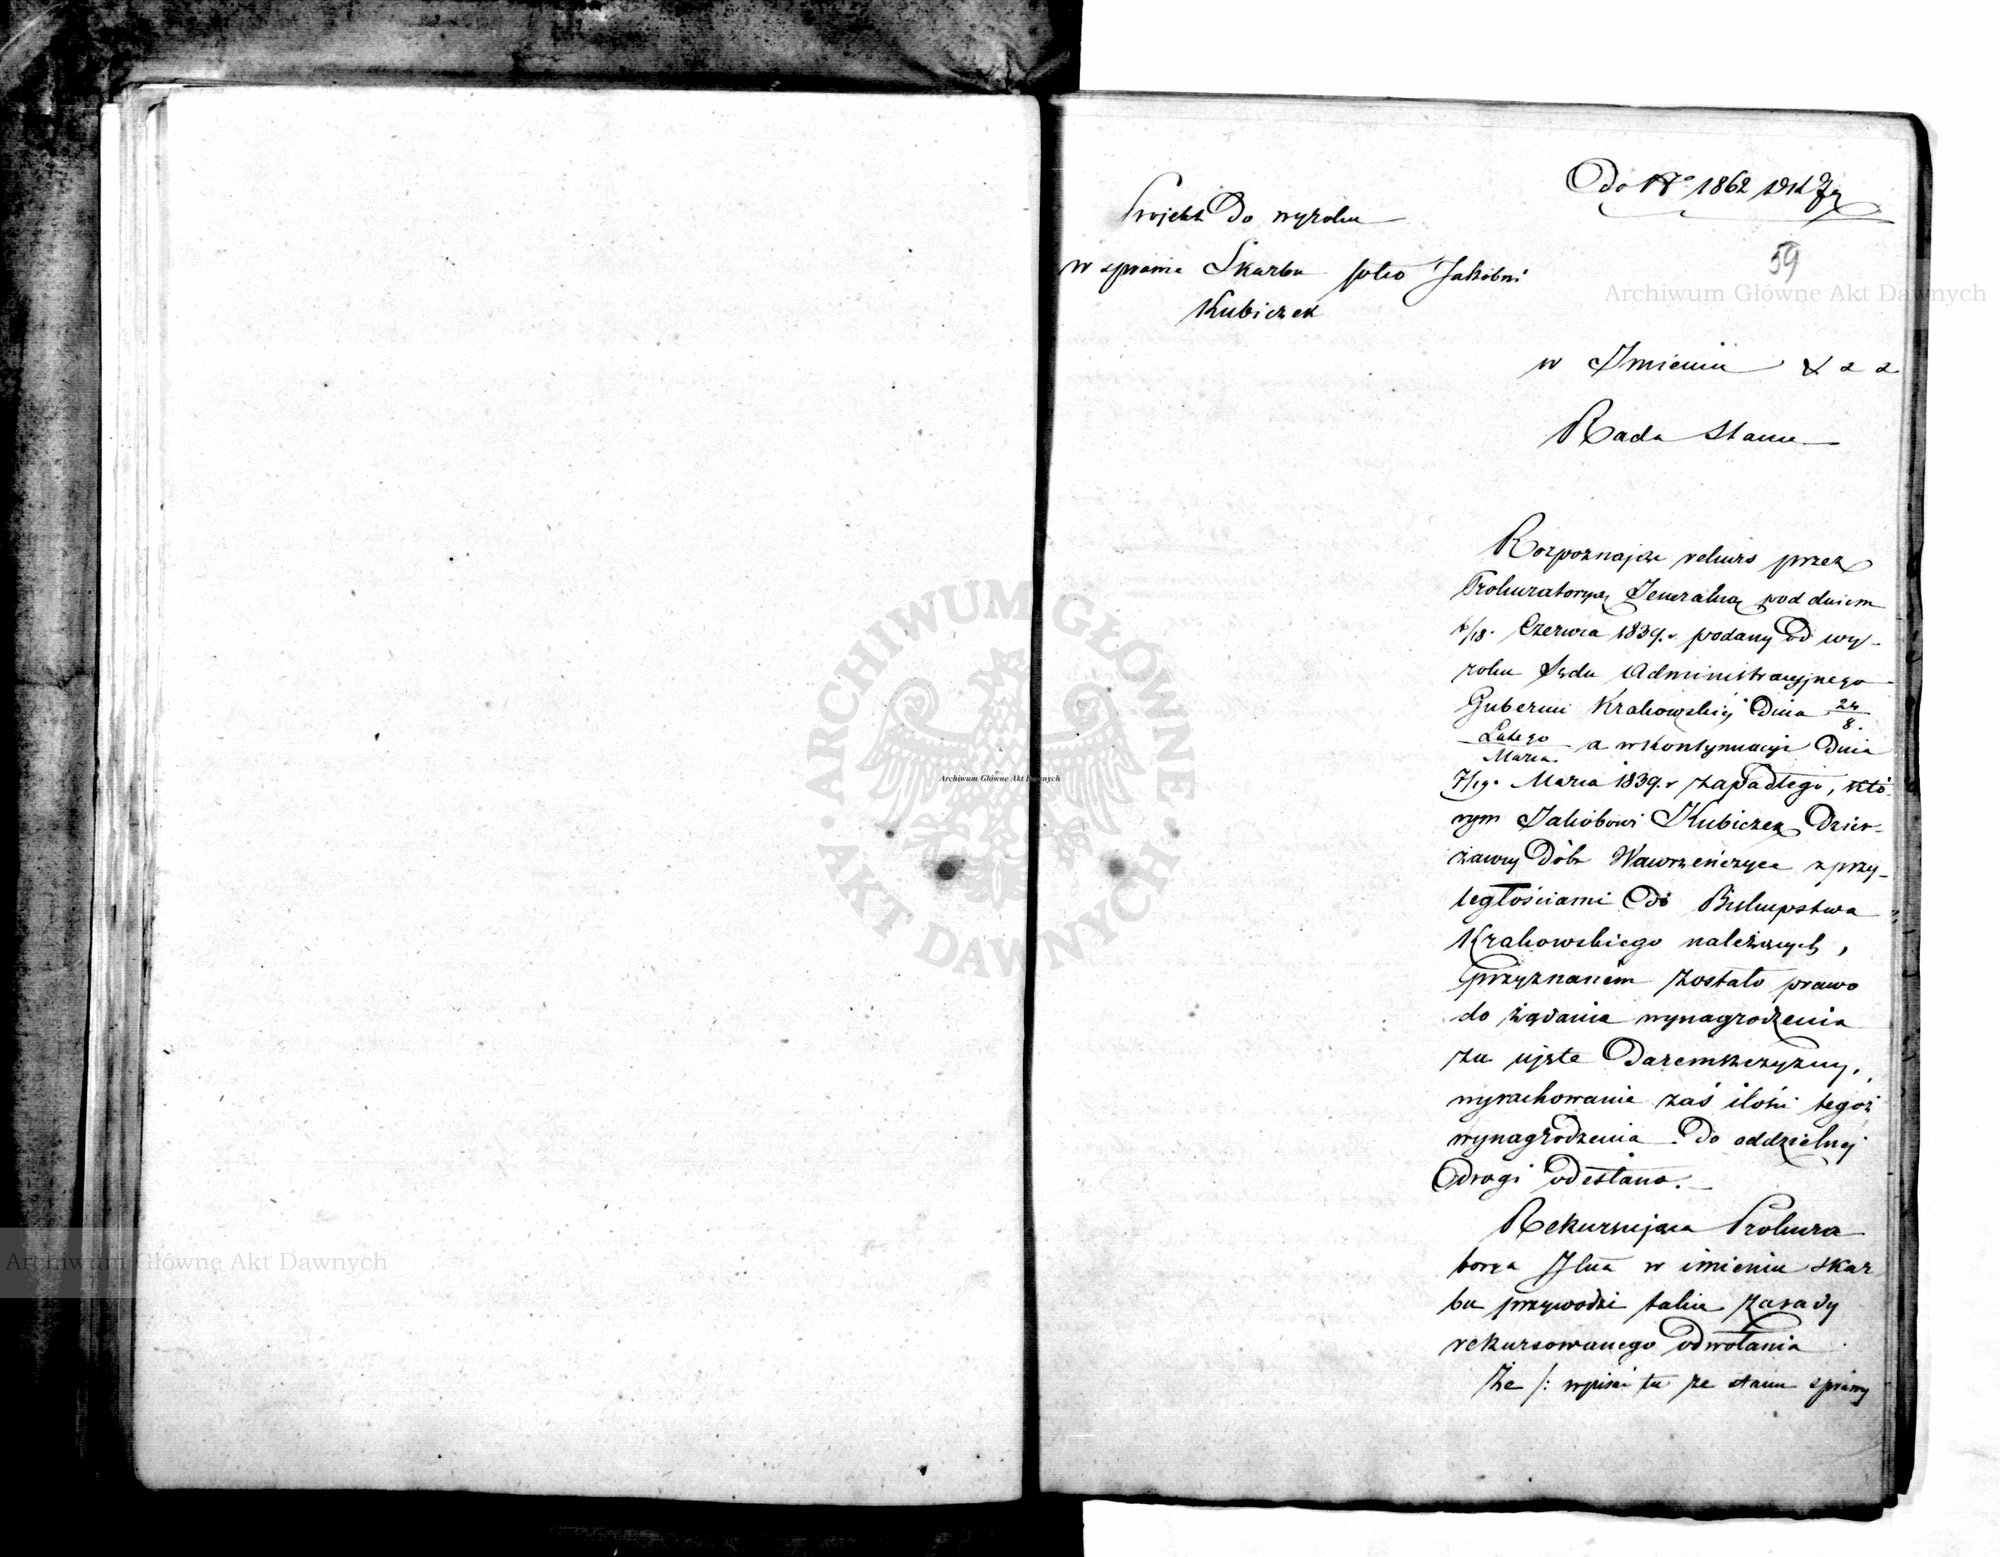 Do No 1862
Projekt Do wyroku
59
w sprawie Skarbu ptko Jakóbowi
Kubiczek
Archiwum Główne Akt Dawnych
w Imieniu
Rada Stanu
Rozpoznając rekurs przez
Prokuratoryą Jeneralną pod dniem
6/18. Czerwca 1839. r podany od wy-
roku Sądu Administracyjnego
Gubernii Krakowskiej Dnia 24/8.
Lutego/Marca. a w kontynuacyi Dnia
7/19. Marca 1839. r zapadłego, któ-
rym Jakóbowi Kubiczek Dzier-
żawcy Dóbr Wawrzeńczyce z przy-
ległościami do Biskupstwa
Krakowskiego należących,
przyznanem zostało prawo
do żądania wynagrodzenia
za ujęte Daremszczyzny,
wyrachowanie zaś ilości tegoż
wynagrodzenia Do oddzielnej
drogi odesłano.
Rekursująca Prokura
torya Jlna w imieniu skar
bu przywodzi takie zasady
rekursowanego odwołania
Że /: wpisać tu ze stanu sprawy
ARCHIWUM GŁÓWNE AKT DAWNYCH
Archiwum Główne Akt Dawnych
Archiwum Główne Akt Dawnych